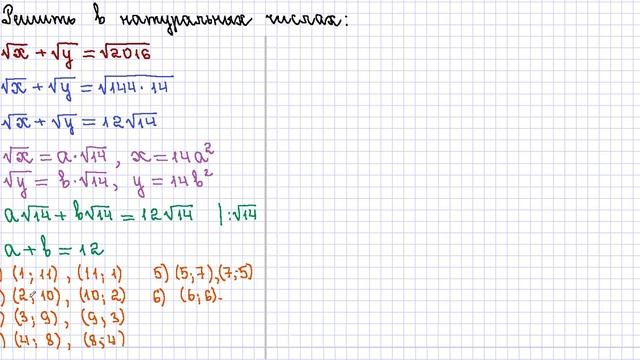 Решить в натуральных числах:
√x + √y = √2016
√x + √y = √144·14
√x + √y = 12√14
√x = a·√14, x = 14a²
√y = b·√14, y = 14b²
a√14 + b√14 = 12√14 |:√14
a + b = 12
) (1; 11), (11; 1) 5) (5; 7), (7; 5)
) (2; 10), (10; 2) 6) (6; 6).
) (3; 9), (9; 3)
) (4; 8), (8; 4)